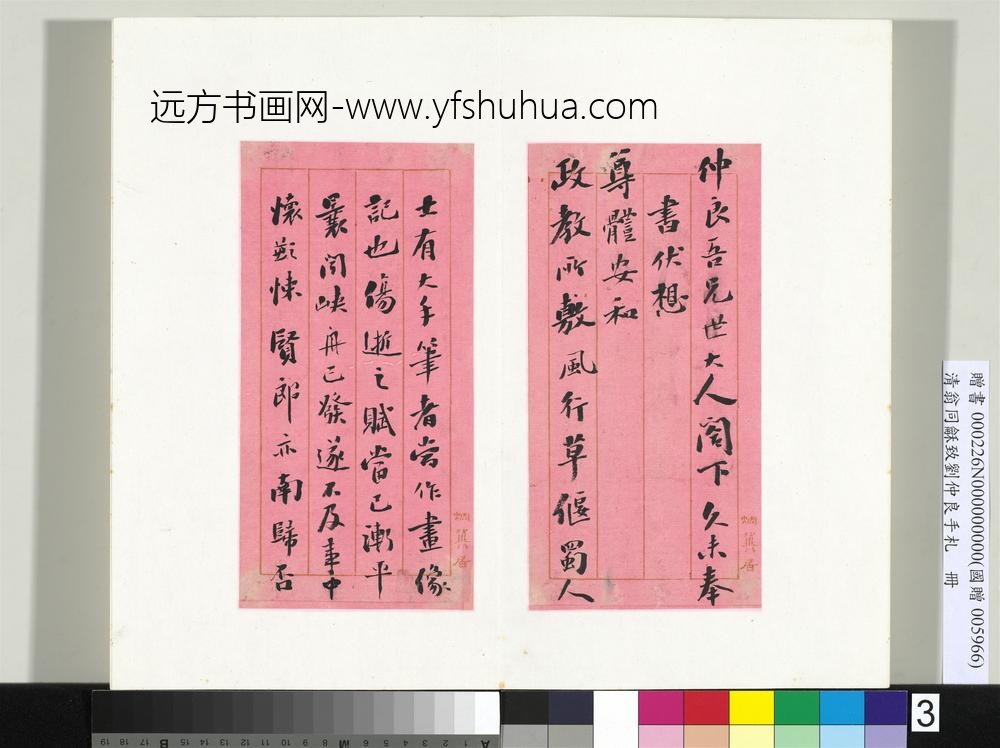 远方书画网-www.yfshuhua.com
仲良吾兄世大人阁下久未奉
書伏想
尊體安和
政教所敷風行草偃蜀人
士有大手筆者當作畫像
記也傷逝之賦當已漸平
曩聞峽舟已發遂不及車中
懷歉悚賢郎亦南歸否
贈書 000226N000000000(國贈 005966)
清翁同龢致劉仲良手札 冊
3